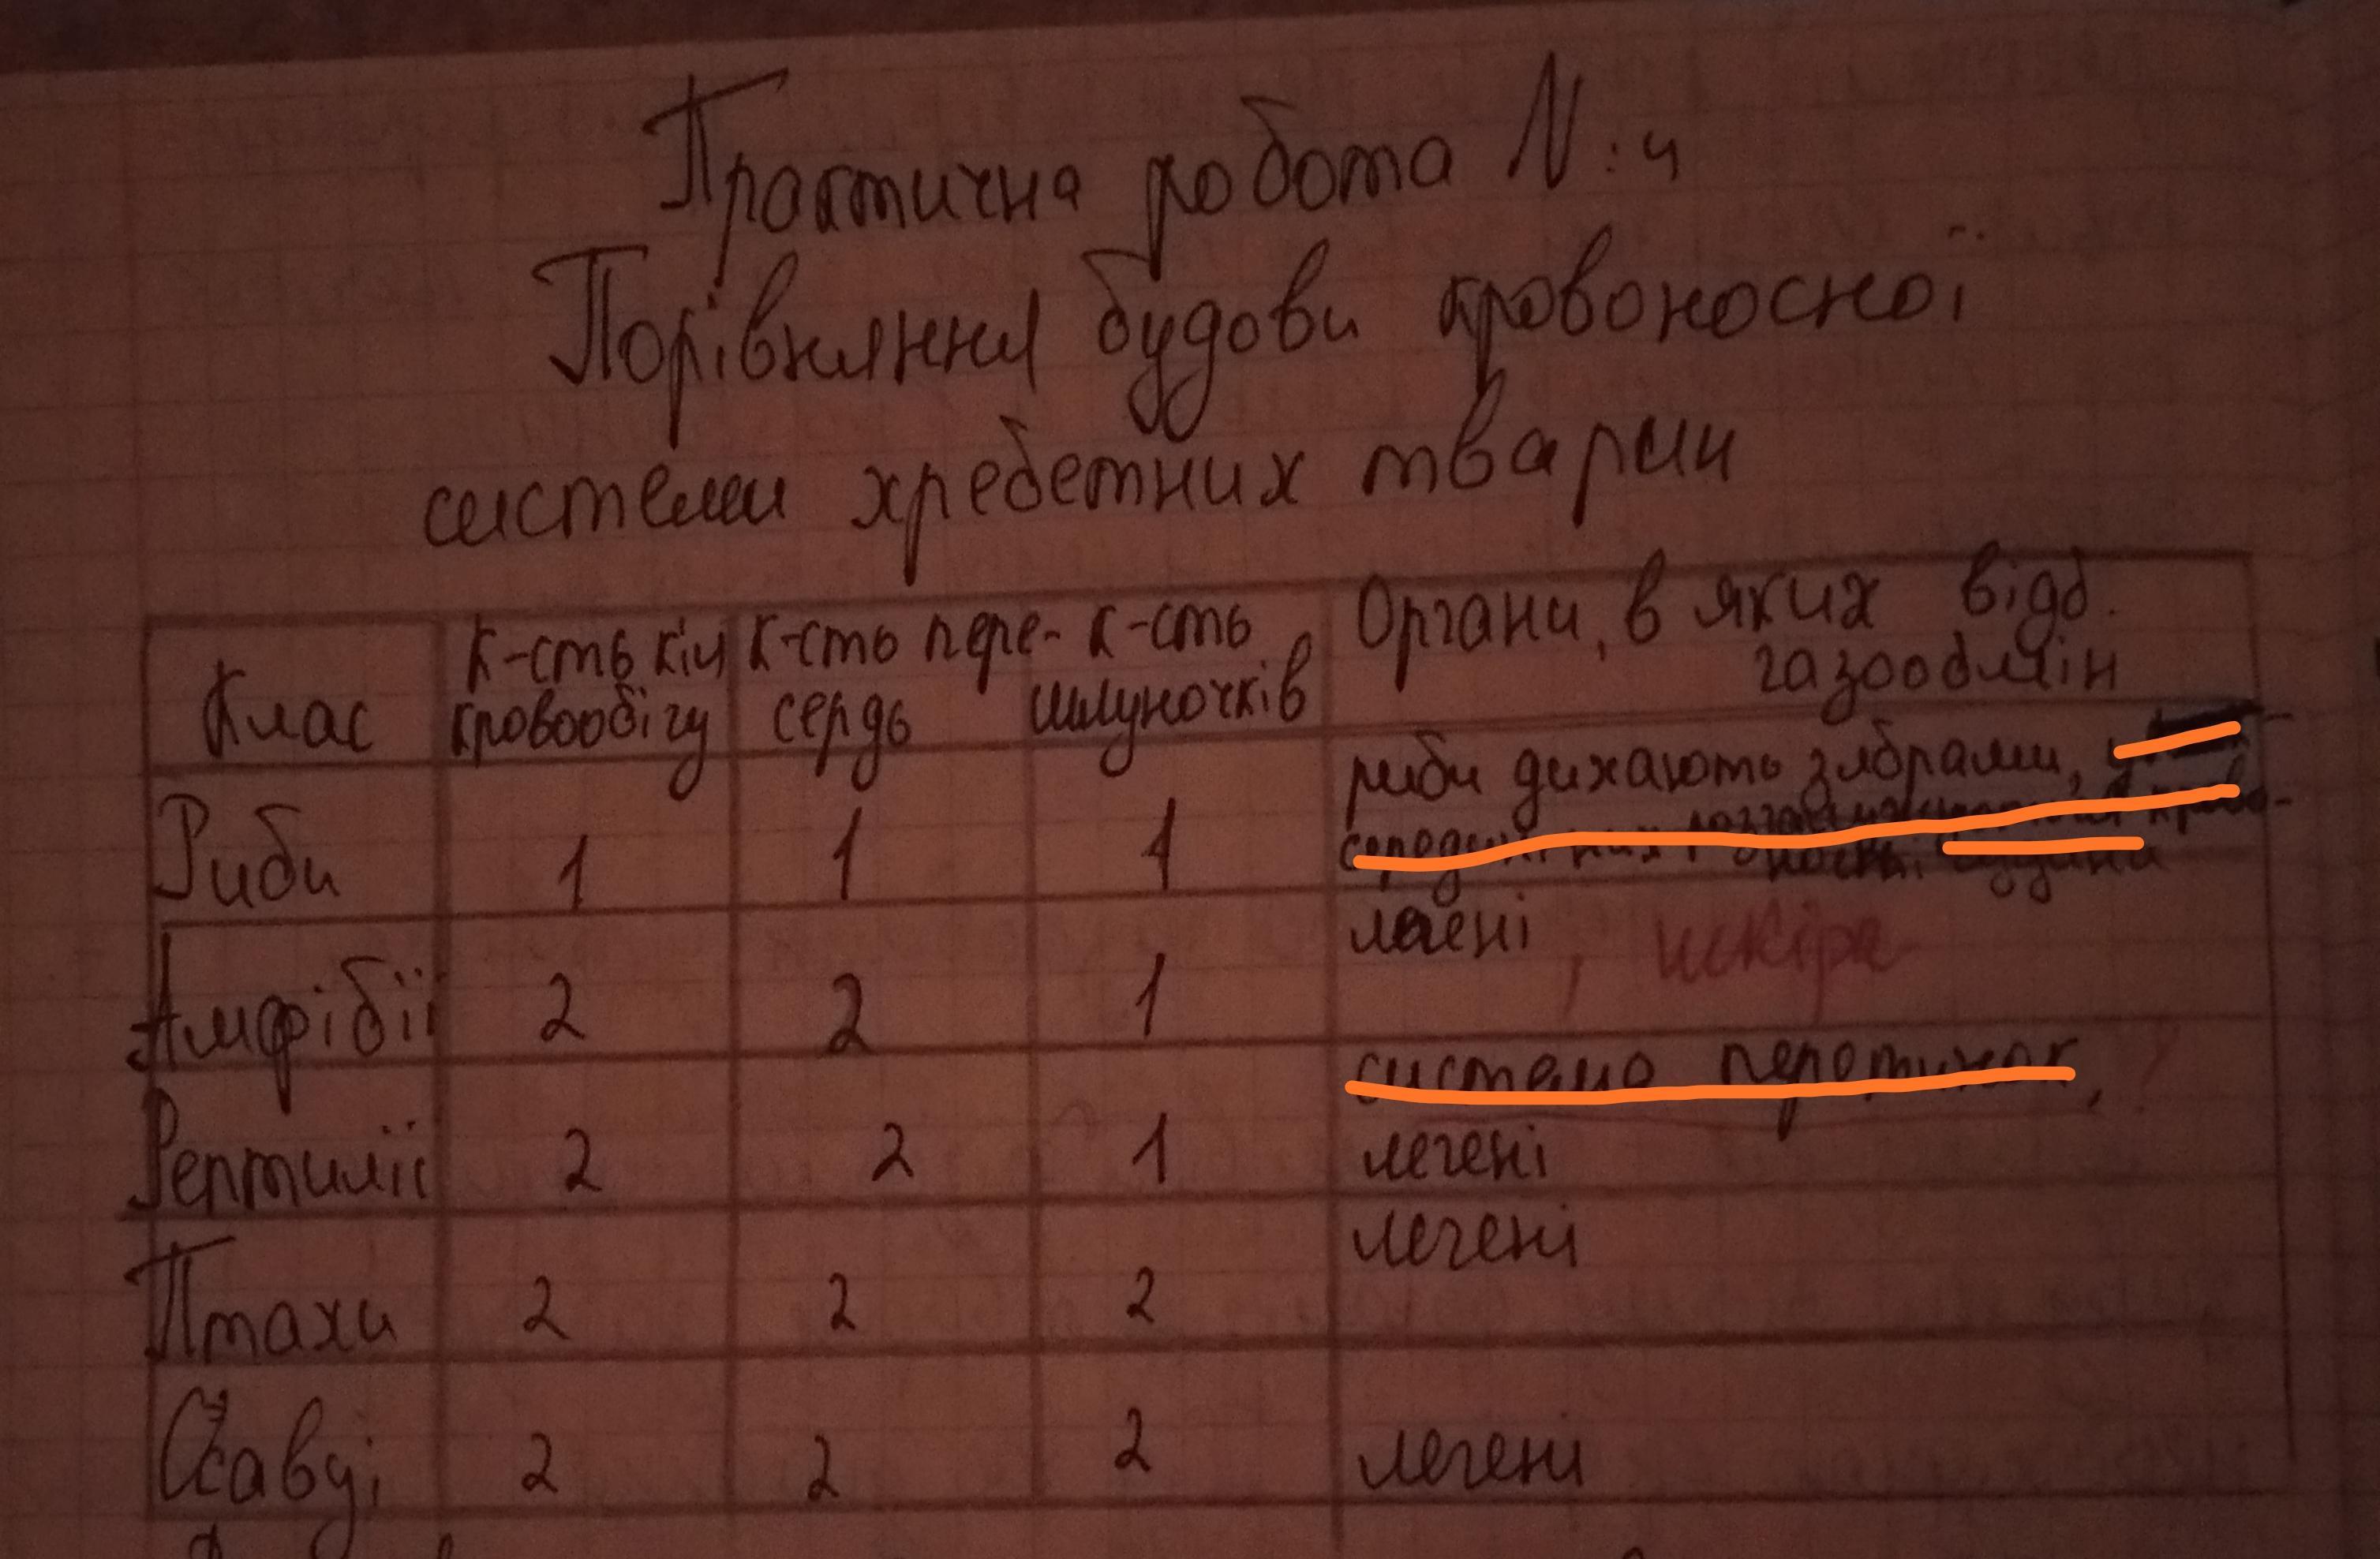 Практична робота N:4
Порівняння будови кровоносної
системи хребетних тварин
Клас
к-сть кіл
кровообігу
к-сть перед-
сердь
к-сть
шлуночків
Органи, в яких відб.
газообмін
Риби 1 1 1
риби дихають зябрами, у
середині них
судини
Амфібії 2 2 1 легені, шкіра
Рептилії 2 2 1
система перетинок, ?
легені
Птахи 2 2 2 легені
Ссавці 2 2 2 легені